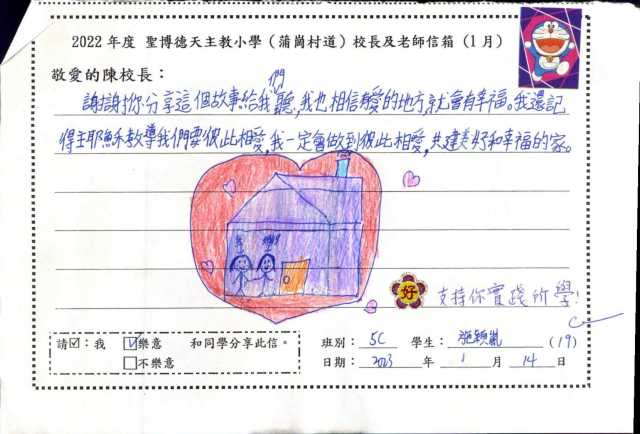 2022 年度 聖博德天主教小學（蒲崗村道）校長及老師信箱（1月）
敬愛的陳校長：
謝謝你分享這個故事給我們聽，我也相信有愛的地方就會有幸福。我還記
得主耶穌教導我們要彼此相愛，我一定會做到彼此相愛，共建美好和幸福的家。
好
支持你實踐所學！
請☑：我 ☑樂意 和同學分享此信。
□不樂意
班別： 5C 學生： 施穎 (19)
日期： 2023 年 1 月 14 日